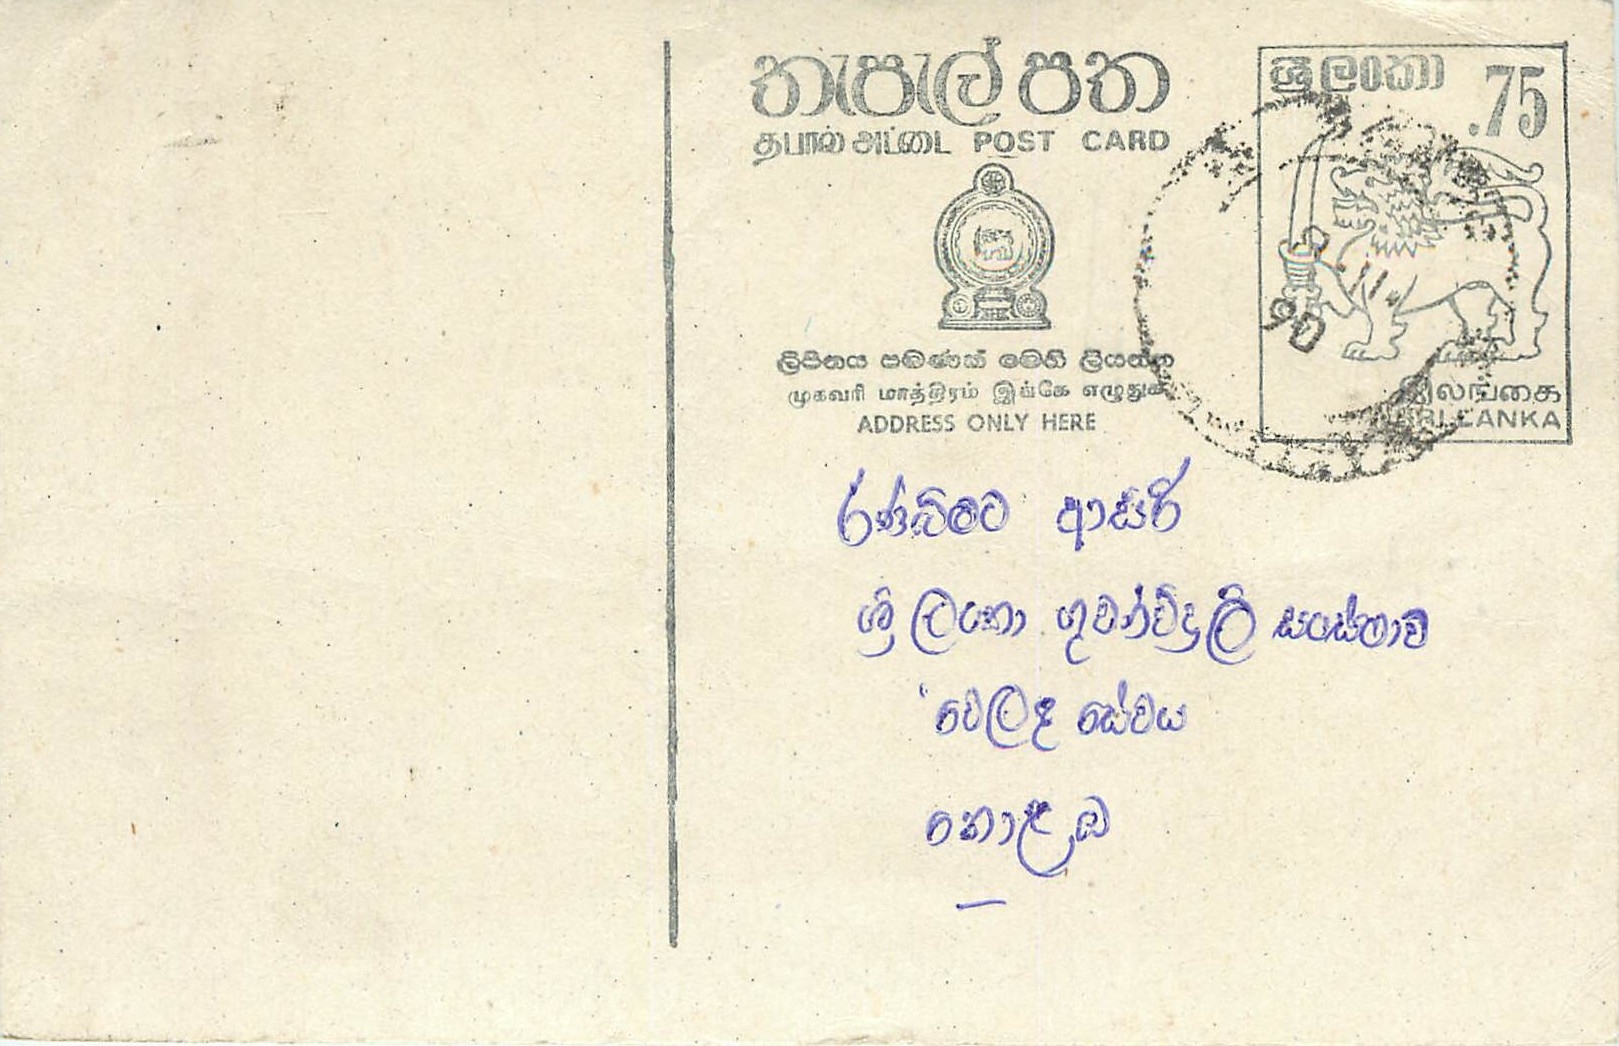 තැපැල් පත
தபால் அட்டை POST CARD
ශ්‍රී ලංකා .75
ලිපිනය පමණක් මෙහි ලියන්න
முகவரி மாத்திரம் இங்கே எழுதுக
ADDRESS ONLY HERE
இலங்கை
SRI LANKA
90
රණබිමට ආසිරි
ශ්‍රී ලංකා ගුවන්විදුලි සංස්ථාව
වෙලඳ සේවය
කොළඹ